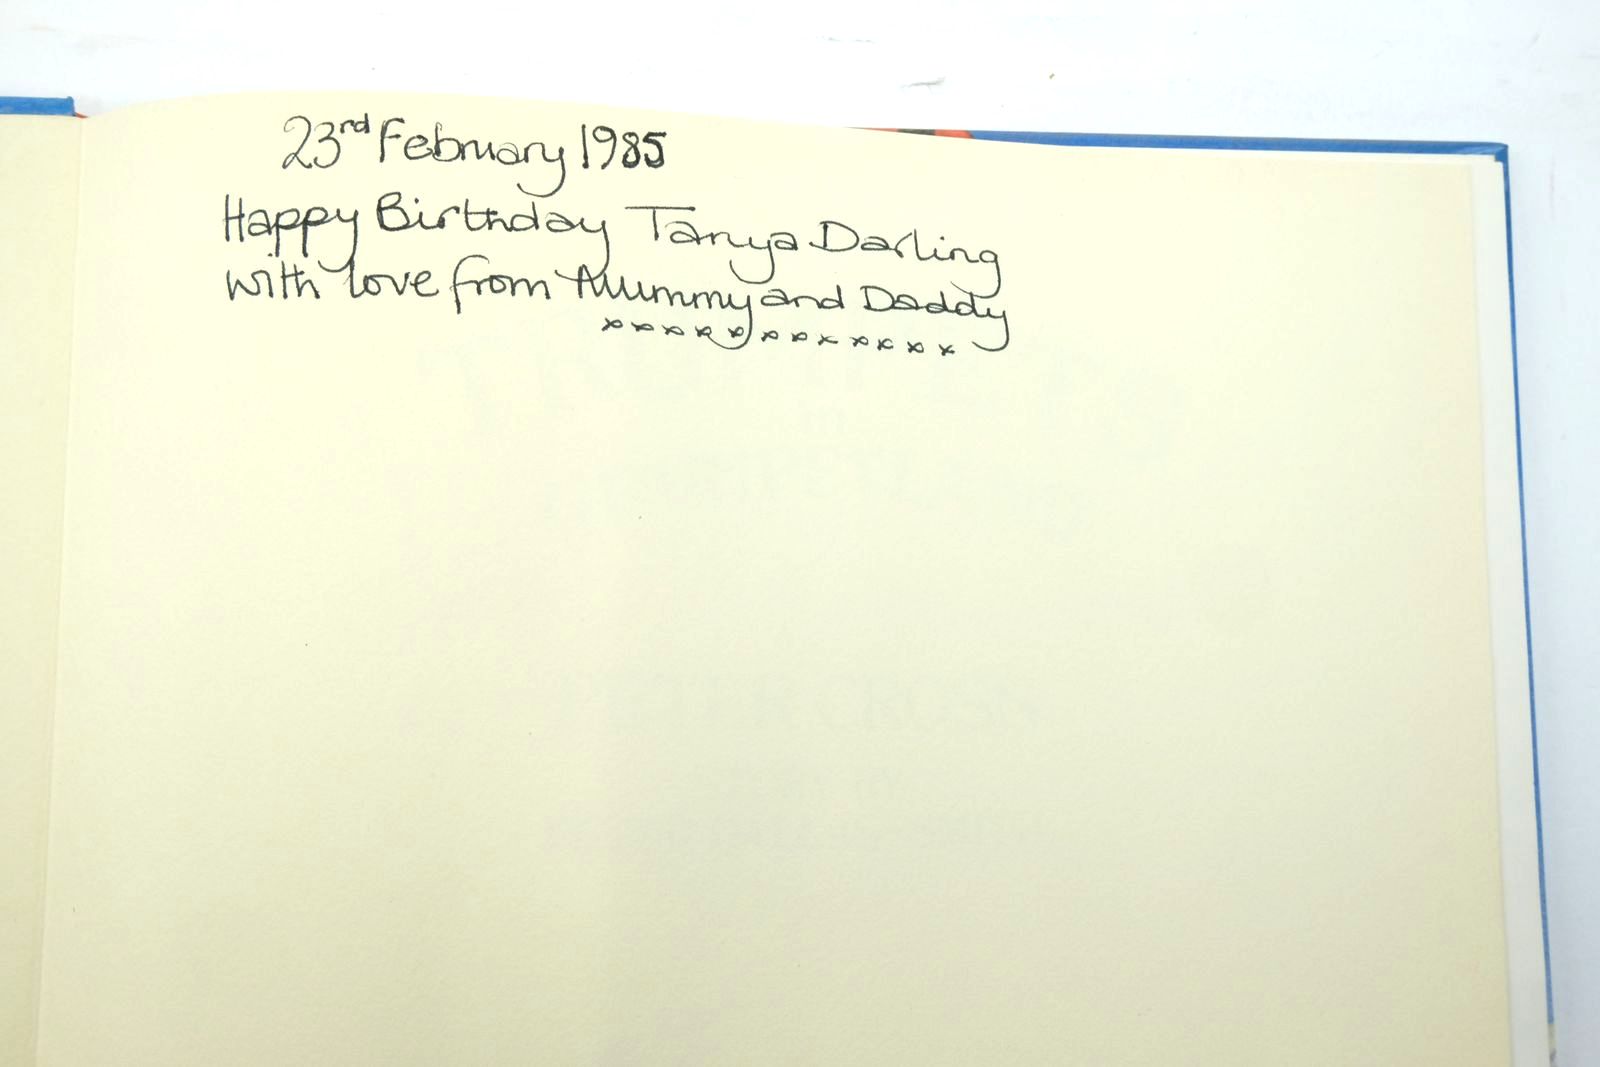 23rd February 1985
Happy Birthday Tanya Darling
with love from Mummy and Daddy
xxxxxxxxxxxx
PETER CROSS